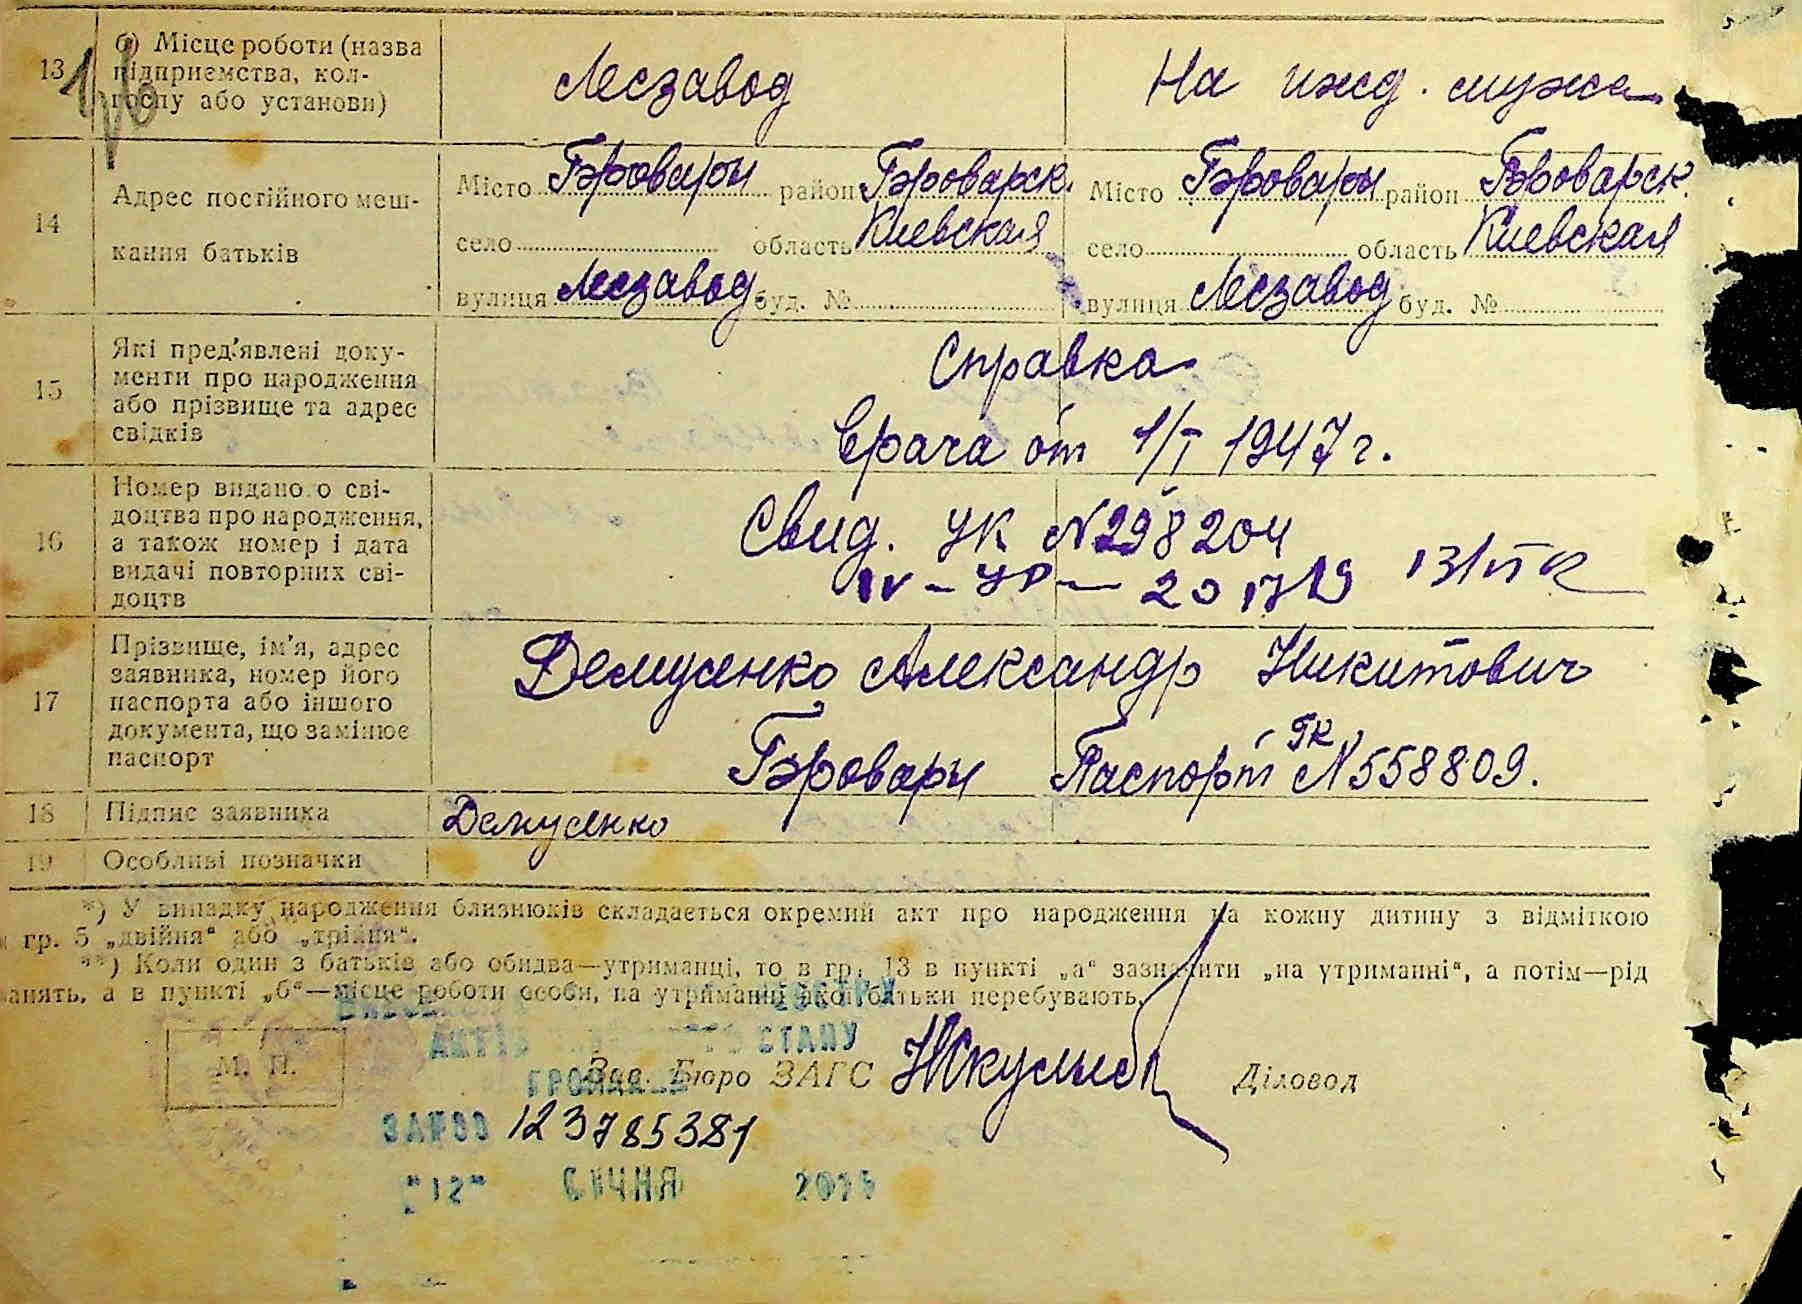 13 б) Місце роботи (назва підприємства, колгоспу або установи) Лесзавод На ижд. мужа
14 Адрес постійного мешкання батьків
Місто Бровары район Броварск. Місто Бровары район Броварск.
село область Киевская село область Киевская
вулиця Лесзавод буд. № вулиця Лесзавод буд. №
15 Які пред'явлені документи про народження або прізвище та адрес свідків
Справка
врача от 1/I 1947 г.
16 Номер виданого свідоцтва про народження, а також номер і дата видачі повторних свідоцтв
Свид. УК N 298204
IV-УР-
17 Прізвище, ім'я, адрес заявника, номер його паспорта або іншого документа, що замінює паспорт
Демусенко Александр Никитович
Бровары Паспорт ГК N 558809.
18 Підпис заявника Демусенко
19 Особливі позначки
*) У випадку народження близнюків складається окремий акт про народження на кожну дитину з відміткою
гр. 5 „двійня“ або „трійня“.
**) Коли один з батьків або обидва—утриманці, то в гр. 13 в пункті „а“ зазначити „на утриманні“, а потім—рід
занять, а в пункті „б“—місце роботи особи, на утриманні якої батьки перебувають.
АКТІВ СТАНУ
М. П. Зав. Бюро ЗАГС Діловод
ГРОМАДЯН
ЗАПИС 123785381
"12" СІЧНЯ